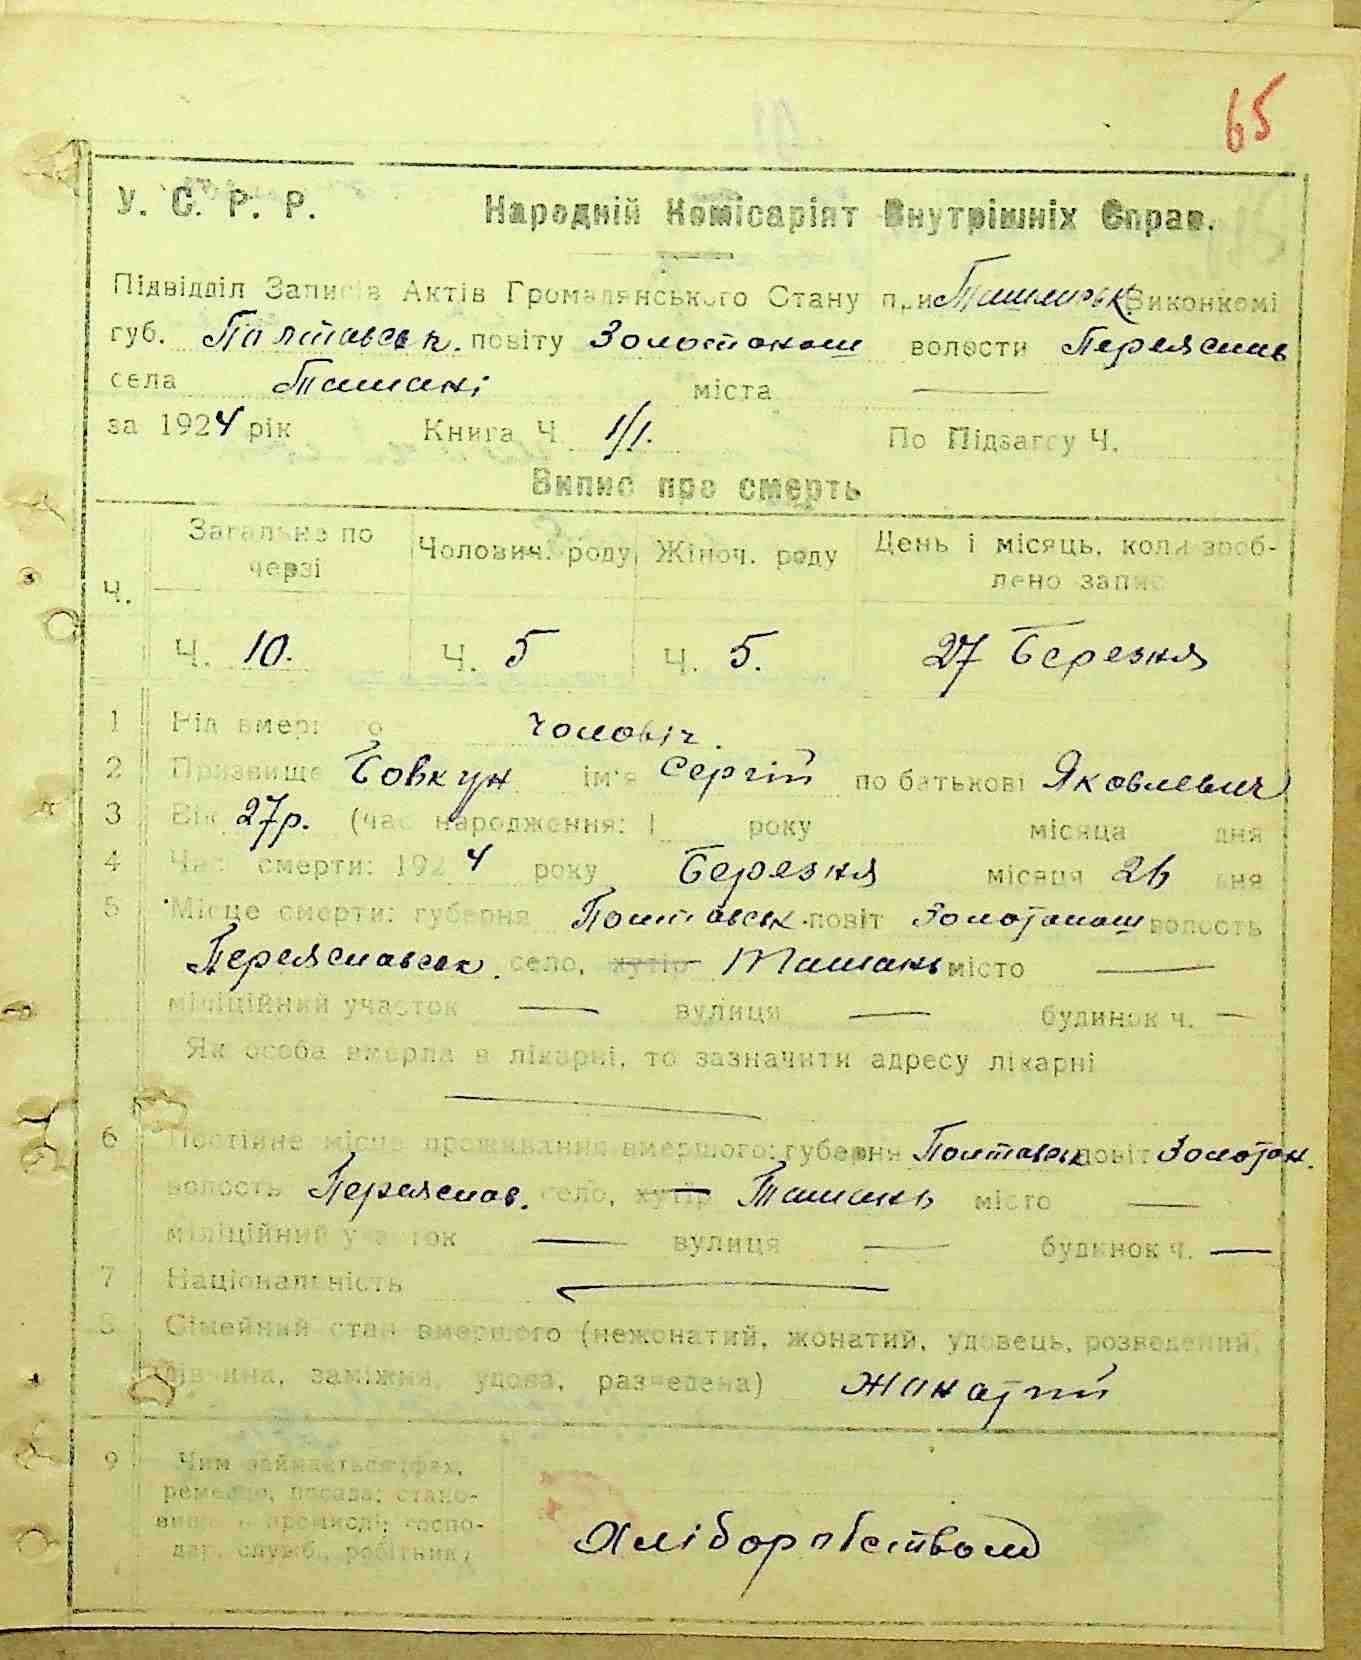 65
У. С. Р. Р. Народній Комісаріят Внутрішніх Справ.
Підвідділ Записів Актів Громадянського Стану при Ташанськ. Виконкомі
губ. Полтавськ. повіту Золотонош волости Переяслав
села Ташані міста —
за 1924 рік Книга Ч 1/1. По Підзагсу Ч.
Випис про смерть
Ч. Загальне по черзі Чолович. роду Жіноч. роду День і місяць, коли зроб-
лено запис
Ч. 10. Ч. 5 Ч. 5. 27 Березня
1 Рід вмершого чоловіч.
2 Призвище Бовкун ім'я Сергій по батькові Яковлевич
3 Вік 27р. (час народження: 1 року місяця дня
4 Час смерти: 1924 року Березня місяця 26 дня
5 Місце смерти: губерня Полтавськ. повіт Золотонош волость
Переяславськ. село, хутір Ташань місто —
міліційний участок — вулиця — будинок ч. —
Як особа вмерла в лікарні, то зазначити адресу лікарні
—
6 Постійне місце проживання вмершого: губерня Полтавськ повіт Золотон.
волость Переяслав. село, хутір Ташань місто —
міліційний участок — вулиця — будинок ч. —
7 Національність —
8 Сімейний стан вмершого (нежонатий, жонатий, удовець, розведений,
дівчина, заміжня, удова, разведена) жонатий
9 Чим займається: фах,
ремесло, посада; стано-
вище в промислі; госпо-
дар, служб., робітник; Хліборобством